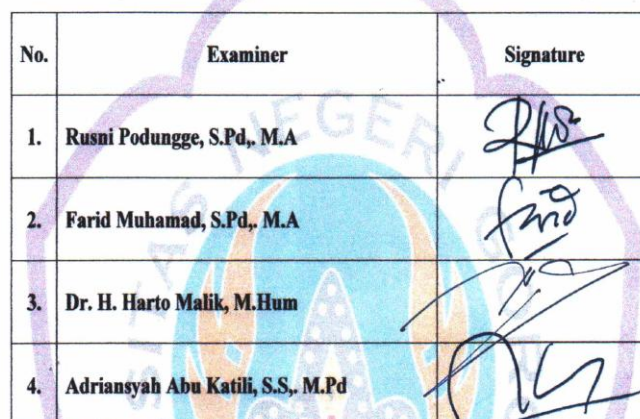 No. Examiner Signature
1. Rusni Podungge, S.Pd,. M.A
2. Farid Muhamad, S.Pd,. M.A
3. Dr. H. Harto Malik, M.Hum
4. Adriansyah Abu Katili, S.S,. M.Pd
SITAS NEGERI